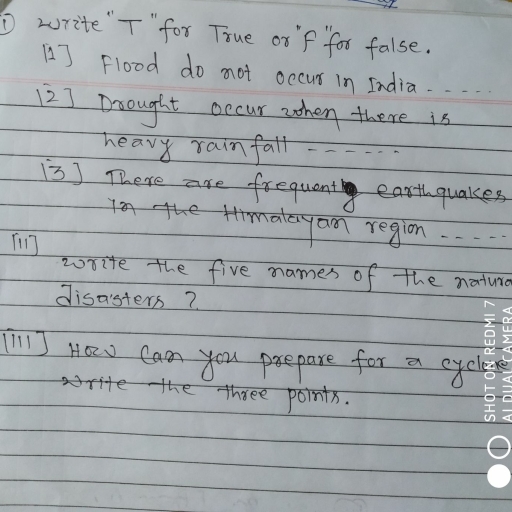 ① Write "T" for True or "F" for false.
[1] Flood do not occur in India .....
[2] Drought occur when there is
heavy rainfall .......
[3] There are frequently earthquakes
in the Himalayan region .....
[II]
Write the five names of the natura
disasters ?
[III] How can you prepare for a cyclone
write the three points.
SHOT ON REDMI 7
AI DUAL CAMERA